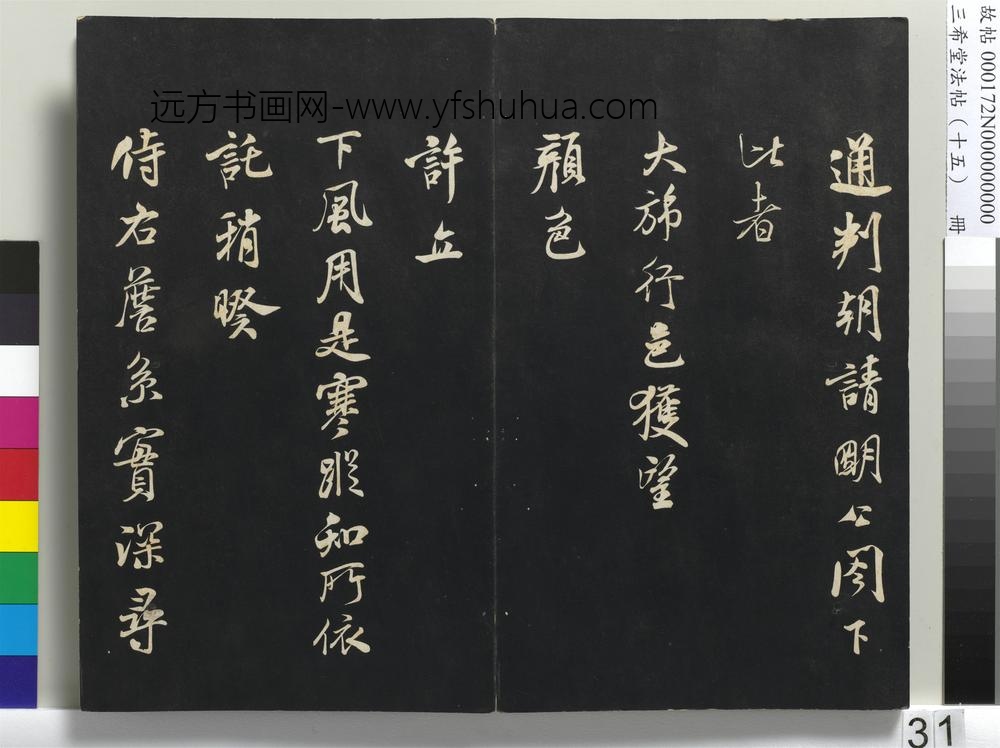 通判朝請明公閤下
比者
大旆行邑獲望
顏色
許立
下風用是寒蹤知所依
託稍暌
侍右詹系實深尋
远方书画网-www.yfshuhua.com
故帖 000172N000000000
三希堂法帖（十五） 冊
31